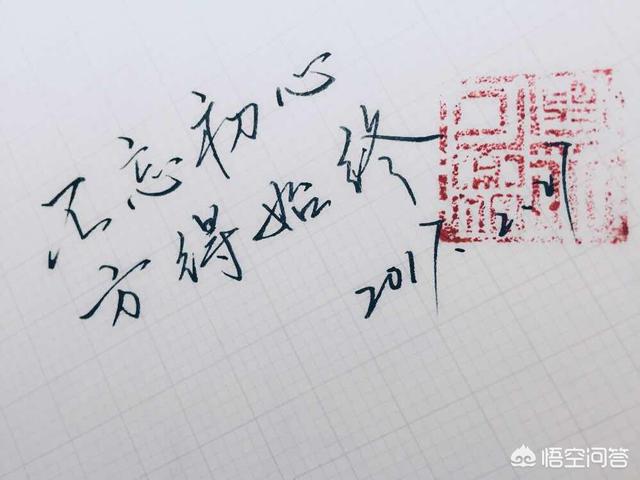 不忘初心
方得始终
2017.2.21
悟空问答